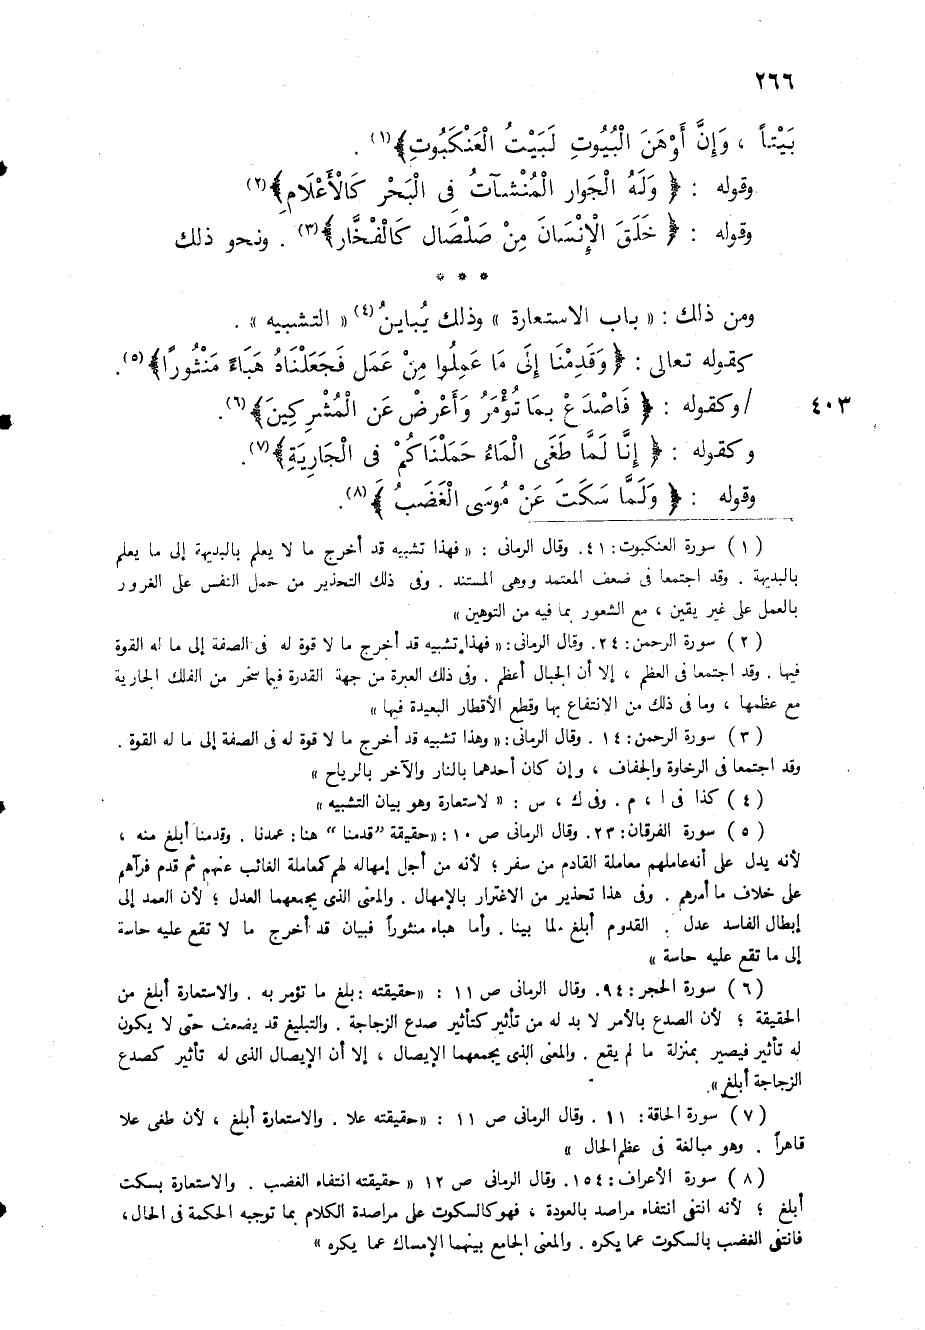 ٢٦٦
بَيْتاً ، وَإِنَّ أَوْهَنَ الْبُيُوتِ لَبَيْتُ الْعَنْكَبُوتِ﴾(١) .
وقوله : ﴿ وَلَهُ الْجَوارِ الْمُنْشَآتُ فِى الْبَحْرِ كَالْأَعْلَامِ﴾(٢)
وقوله : ﴿ خَلَقَ الْإِنْسَانَ مِنْ صَلْصَالٍ كَالْفَخَّارِ﴾(٣) . ونحو ذلك
* * *
ومن ذلك : « باب الاستعارة » وذلك يُباينُ(٤) « التشبيه » .
كقوله تعالى : ﴿ وَقَدِمْنَا إِلَى مَا عَمِلُوا مِنْ عَمَلٍ فَجَعَلْنَاهُ هَبَاءً مَنْثُورًا﴾(٥) .
٤٠٣ /وكقوله : ﴿ فَاصْدَعْ بِمَا تُؤْمَرُ وَأَعْرِضْ عَنِ الْمُشْرِكِينَ﴾(٦) .
وكقوله : ﴿ إِنَّا لَمَّا طَغَى الْمَاءُ حَمَلْنَاكُمْ فِى الْجَارِيَةِ﴾(٧) .
وقوله : ﴿ وَلَمَّا سَكَتَ عَنْ مُوسَى الْغَضَبُ ﴾(٨) .
(١) سورة العنكبوت: ٤١. وقال الرمانى : « فهذا تشبيه قد أخرج ما لا يعلم بالبديهة إلى ما يعلم
بالبديهة . وقد اجتمعا فى ضعف المعتمد ووهى المستند . وفى ذلك التحذير من حمل النفس على الغرور
بالعمل على غير يقين ، مع الشعور بما فيه من التوهين »
(٢) سورة الرحمن: ٢٤. وقال الرمانى: « فهذا تشبيه قد أخرج ما لا قوة له فى الصفة إلى ما له القوة
فيها . وقد اجتمعا فى العظم ، إلا أن الجبال أعظم . وفى ذلك العبرة من جهة القدرة فيما سخر من الفلك الجارية
مع عظمها ، وما فى ذلك من الانتفاع بها وقطع الأقطار البعيدة فيها »
(٣) سورة الرحمن: ١٤ . وقال الرمانى: « وهذا تشبيه قد أخرج ما لا قوة له فى الصفة إلى ما له القوة .
وقد اجتمعا فى الرخاوة والجفاف ، وإن كان أحدهما بالنار والآخر بالرياح »
(٤) كذا فى ا ، م . وفى ك ، س : « لاستعارة وهو بيان التشبيه »
(٥) سورة الفرقان: ٢٣. وقال الرمانى ص ١٠: «حقيقة "قدمنا" هنا: عمدنا . وقدمنا أبلغ منه ،
لأنه يدل على أنه عاملهم معاملة القادم من سفر ؛ لأنه من أجل إمهاله لهم كمعاملة الغائب عنهم ثم قدم فرآهم
على خلاف ما أمرهم . وفى هذا تحذير من الاغترار بالإمهال . والمعنى الذى يجمعهما العدل ؛ لأن العمد إلى
إبطال الفاسد عدل . القدوم أبلغ لما بينا . وأما هباء منثوراً فبيان قد أخرج ما لا تقع عليه حاسة
إلى ما تقع عليه حاسة »
(٦) سورة الحجر: ٩٤. وقال الرمانى ص ١١ : «حقيقته : بلغ ما تؤمر به . والاستعارة أبلغ من
الحقيقة ؛ لأن الصدع بالأمر لا بد له من تأثير كتأثير صدع الزجاجة . والتبليغ قد يضعف حتى لا يكون
له تأثير فيصير بمنزلة ما لم يقع . والمعنى الذى يجمعهما الإيصال ، إلا أن الإيصال الذى له تأثير كصدع
الزجاجة أبلغ ».
(٧) سورة الحاقة: ١١ . وقال الرمانى ص ١١ : «حقيقته علا . والاستعارة أبلغ ، لأن طغى علا
قاهراً . وهو مبالغة فى عظم الحال »
(٨) سورة الأعراف: ١٥٤. وقال الرمانى ص ١٢ « حقيقته انتفاء الغضب . والاستعارة بسكت
أبلغ ؛ لأنه انتفى انتفاء مراصد بالعودة ، فهو كالسكوت على مراصدة الكلام بما توجبه الحكمة فى الحال ،
فانتفى الغضب بالسكوت عما يكره . والمعنى الجامع بينهما الإمساك عما يكره »